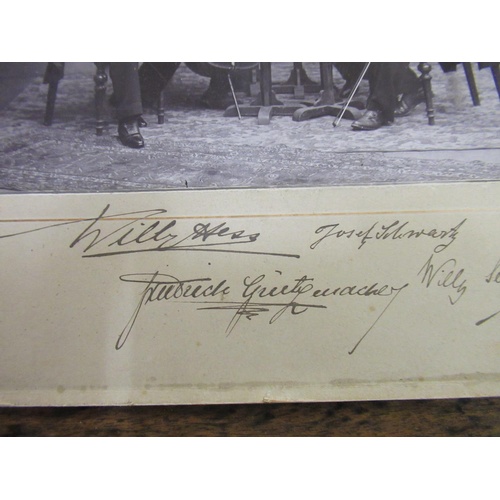 Willy Hess Josef Schwartz
Friedrich Grützmacher Willy